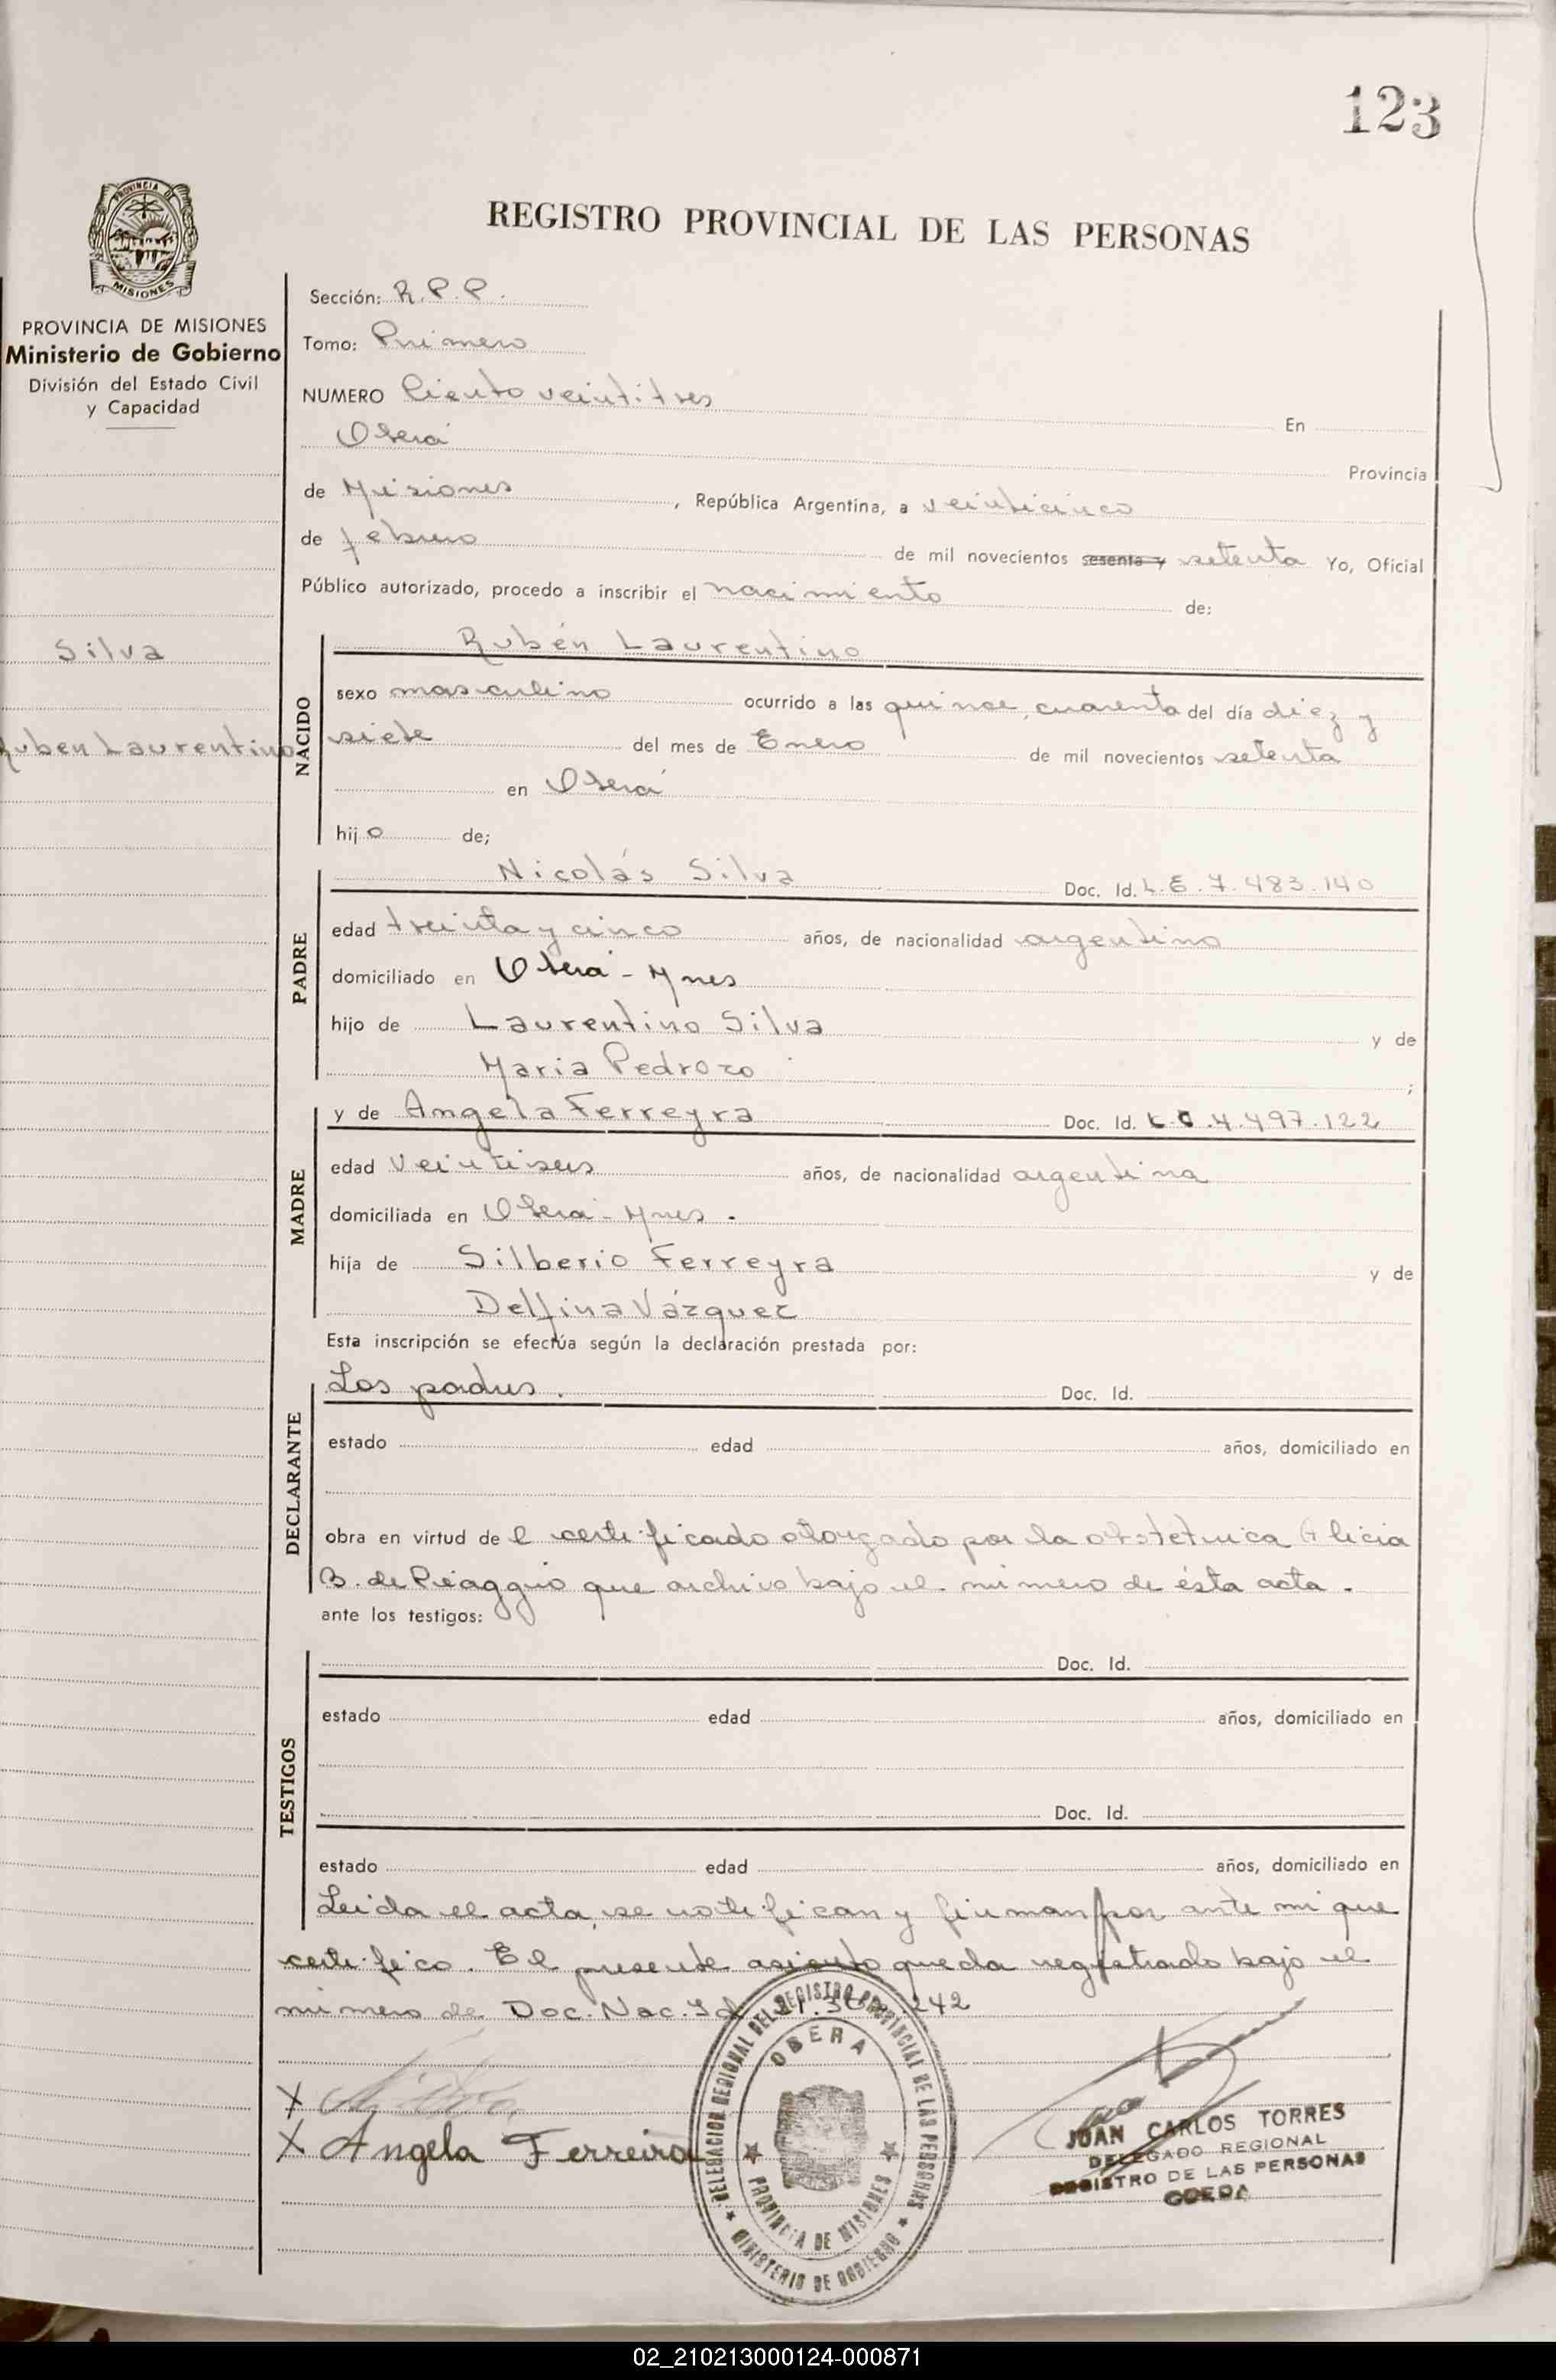 123
PROVINCIA DE MISIONES
REGISTRO PROVINCIAL DE LAS PERSONAS
PROVINCIA DE MISIONES
Ministerio de Gobierno
División del Estado Civil
y Capacidad
Silva
Ruben Laurentino
Sección: R.P.P.
Tomo: Primero
NUMERO Ciento veintitres En
Oberá Provincia
de Misiones, República Argentina, a veinticinco
de febrero de mil novecientos sesenta y setenta Yo, Oficial
Público autorizado, procedo a inscribir el nacimiento de:
NACIDO
Rubén Laurentino
sexo masculino ocurrido a las quince, cuarenta del día diez y
siete del mes de Enero de mil novecientos setenta
en Oberá
hijo de;
PADRE
Nicolás Silva Doc. Id. L.E 7.483.140
edad treinta y cinco años, de nacionalidad argentino
domiciliado en Oberá - Mnes
hijo de Laurentino Silva y de
Maria Pedrozo ;
MADRE
y de Angela Ferreyra Doc. Id. L.C.4.497.122
edad veintiseis años, de nacionalidad argentina
domiciliada en Oberá - Mnes.
hija de Silberio Ferreyra y de
Delfina Vázquez
Esta inscripción se efectúa según la declaración prestada por:
DECLARANTE
Los padres. Doc. Id.
estado edad años, domiciliado en
obra en virtud del certificado otorgado por la obstetrica Alicia
B. de Piaggio que archivo bajo el numero de ésta acta.
ante los testigos:
TESTIGOS
Doc. Id.
estado edad años, domiciliado en
Doc. Id.
estado edad años, domiciliado en
Leida el acta, se notifican y firman por ante mi que
certifico. El presente asiento queda registrado bajo el
numero de Doc. Nac. Id 242
X
X Angela Ferreira
DELEGACION REGIONAL DEL REGISTRO PROVINCIAL DE LAS PERSONAS
OBERA
PROVINCIA DE MISIONES
MINISTERIO DE GOBIERNO
JUAN CARLOS TORRES
DELEGADO REGIONAL
REGISTRO DE LAS PERSONAS
02_210213000124-000871